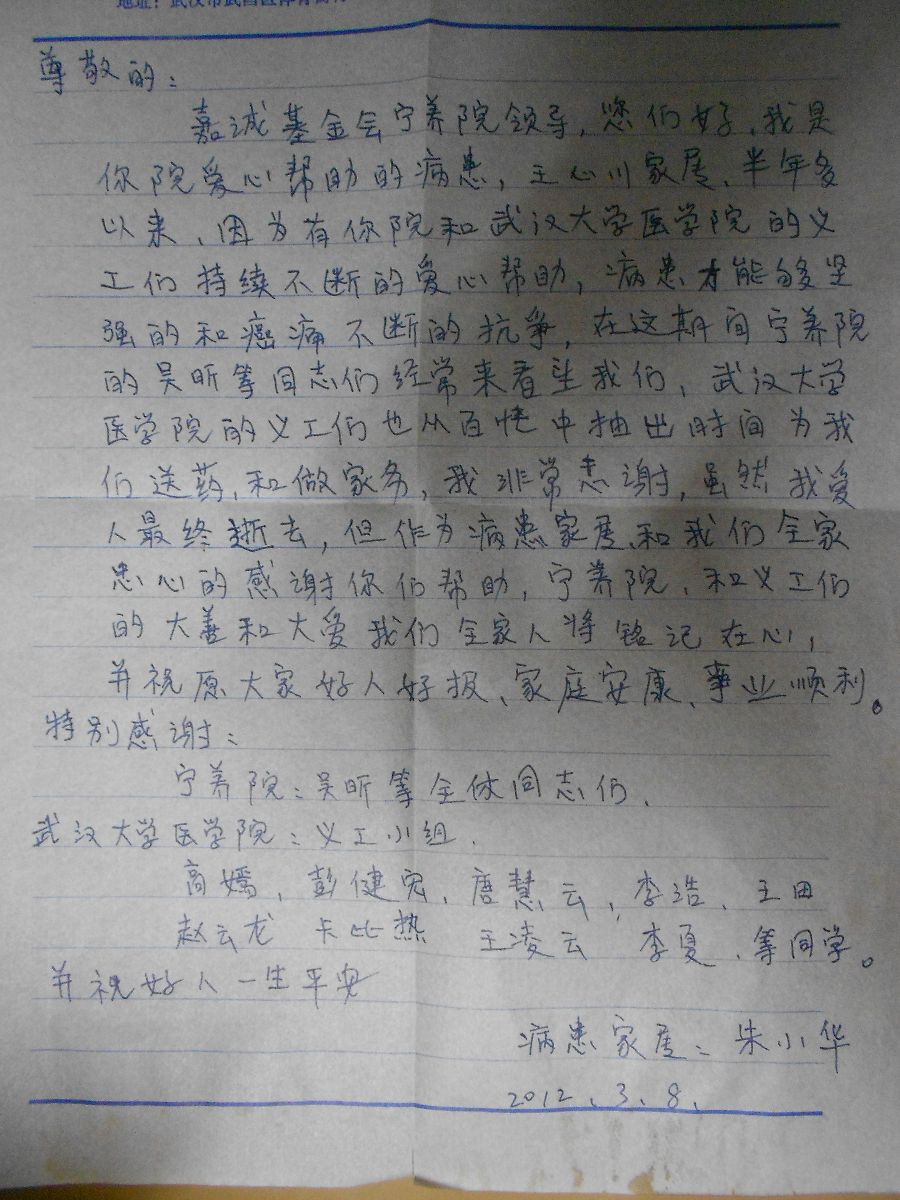 地址：武汉市武昌区体育街
尊敬的：
嘉诚基金会宁养院领导，您们好，我是
你院爱心帮助的病患，王心川家属、半年多
以来、因为有你院和武汉大学医学院的义
工们持续不断的爱心帮助，病患才能够坚
强的和癌痛不断的抗争，在这期间宁养院
的吴昕等同志们经常来看望我们、武汉大学
医学院的义工们也从百忙中抽出时间为我
们送药、和做家务，我非常感谢，虽然我爱
人最终逝去，但作为病患家属、和我们全家
忠心的感谢你们帮助，宁养院、和义工们
的大善和大爱我们全家人将铭记在心，
并祝愿大家好人好报、家庭安康、事业顺利。
特别感谢：
宁养院：吴昕等全体同志们、
武汉大学医学院：义工小组、
高嫣，彭健宽、唐慧云，李浩、王田
赵云龙 卡比热 王凌云 李夏、等同学。
并祝好人一生平安
病患家属：朱小华
2012、3、8、